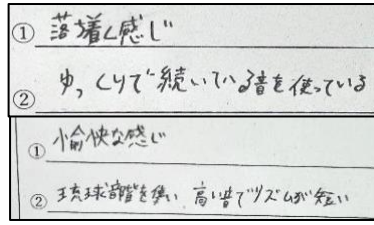 ① 落着く感じ
② ゆっくりで続いている音を使っている
① 愉快な感じ
② 琉球音階を使い 高い音でリズムが短い